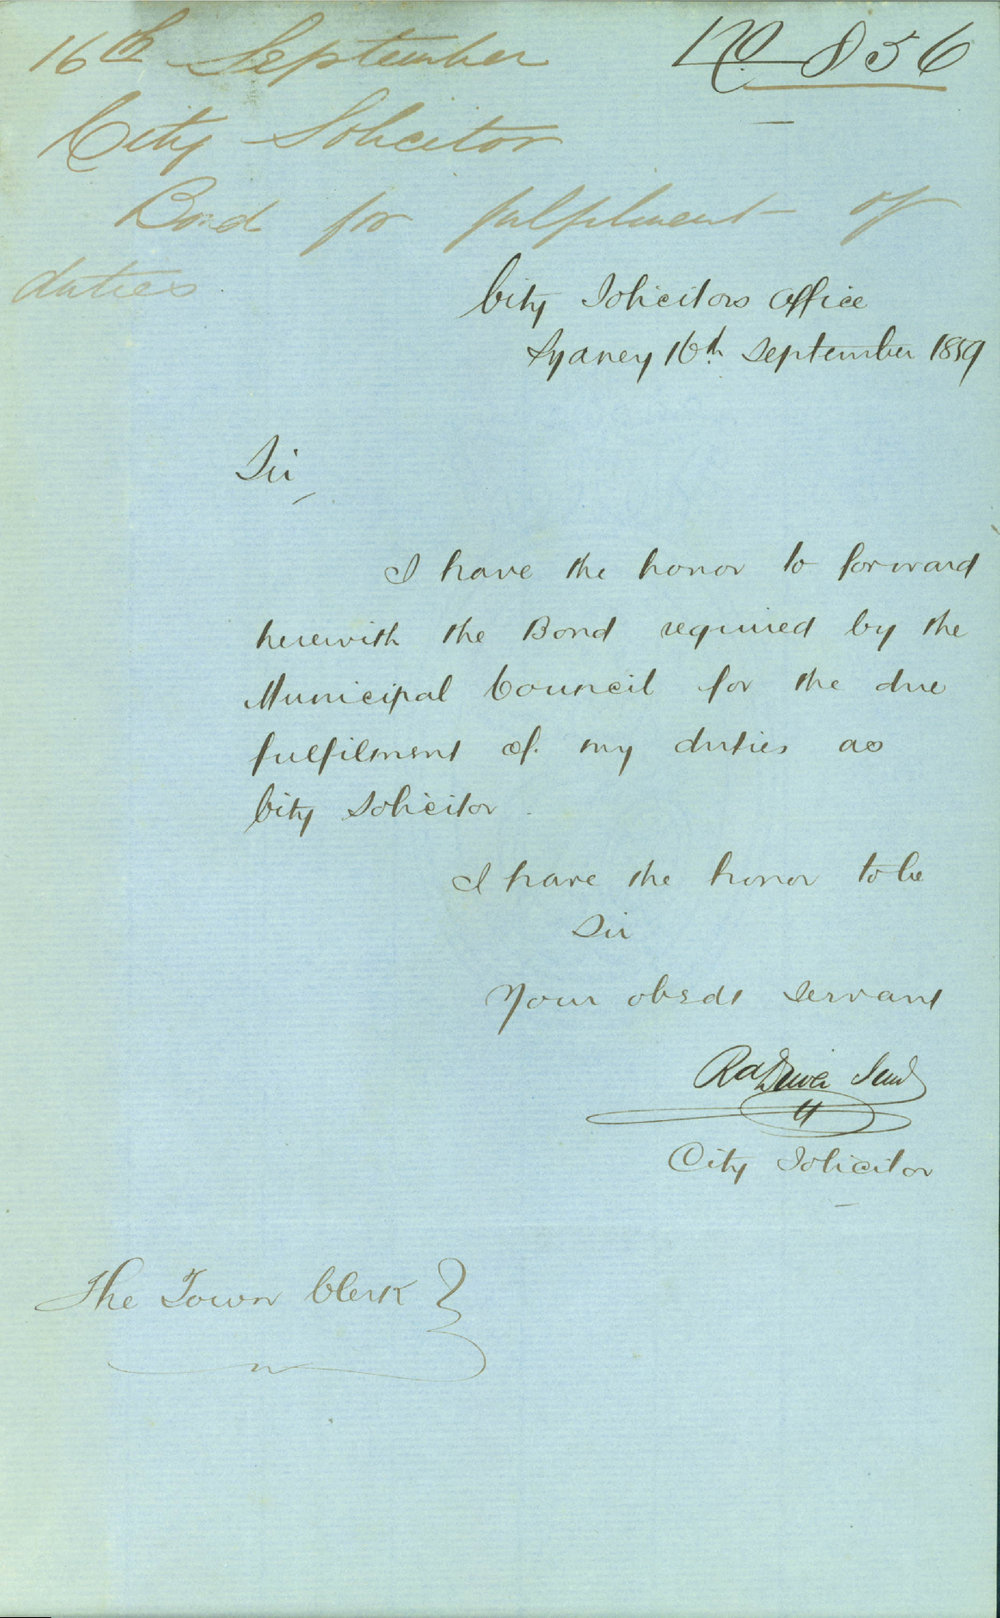 16th September
No. 856
City Solicitor
Bond for fulfilment of
duties
City Solicitors Office
Sydney 16th September 1859
Sir,
I have the honor to forward
herewith the Bond required by the
Municipal Council for the due
fulfilment of my duties as
City Solicitor.
I have the honor to be
Sir
Your obedt servant
Rd Driver
City Solicitor
The Town Clerk